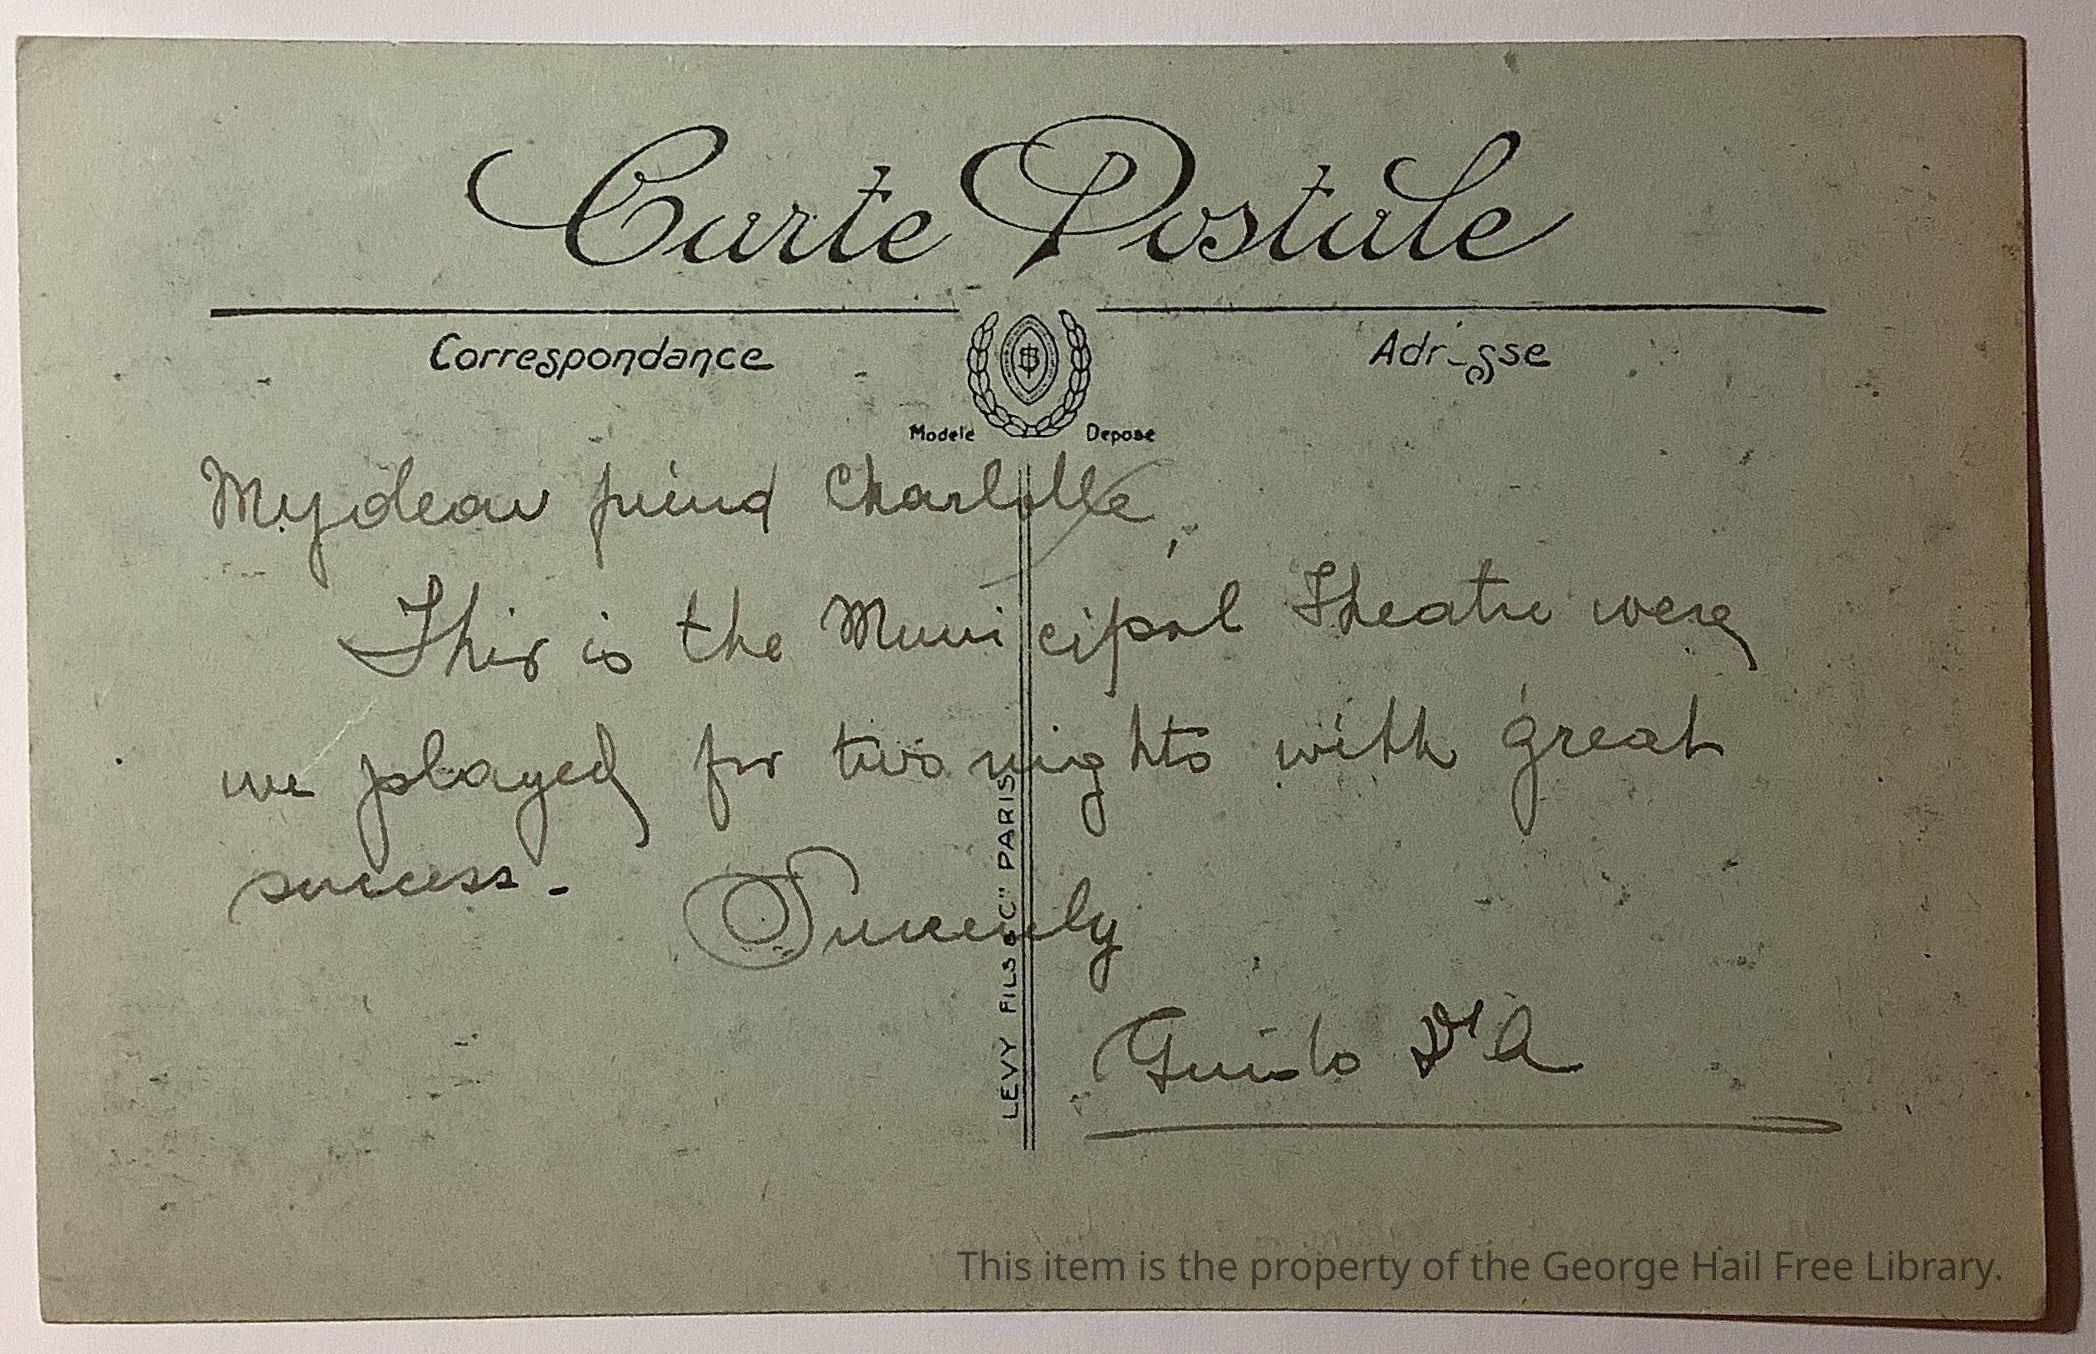 Carte Postale
Correspondance
Adresse
Modele Depose
My dear friend Charlotte,
This is the Municipal Theatre were
we played for two nights with great
success -
Sincerely
Guido D'A
LEVY FILS & Cie PARIS
This item is the property of the George Hail Free Library.